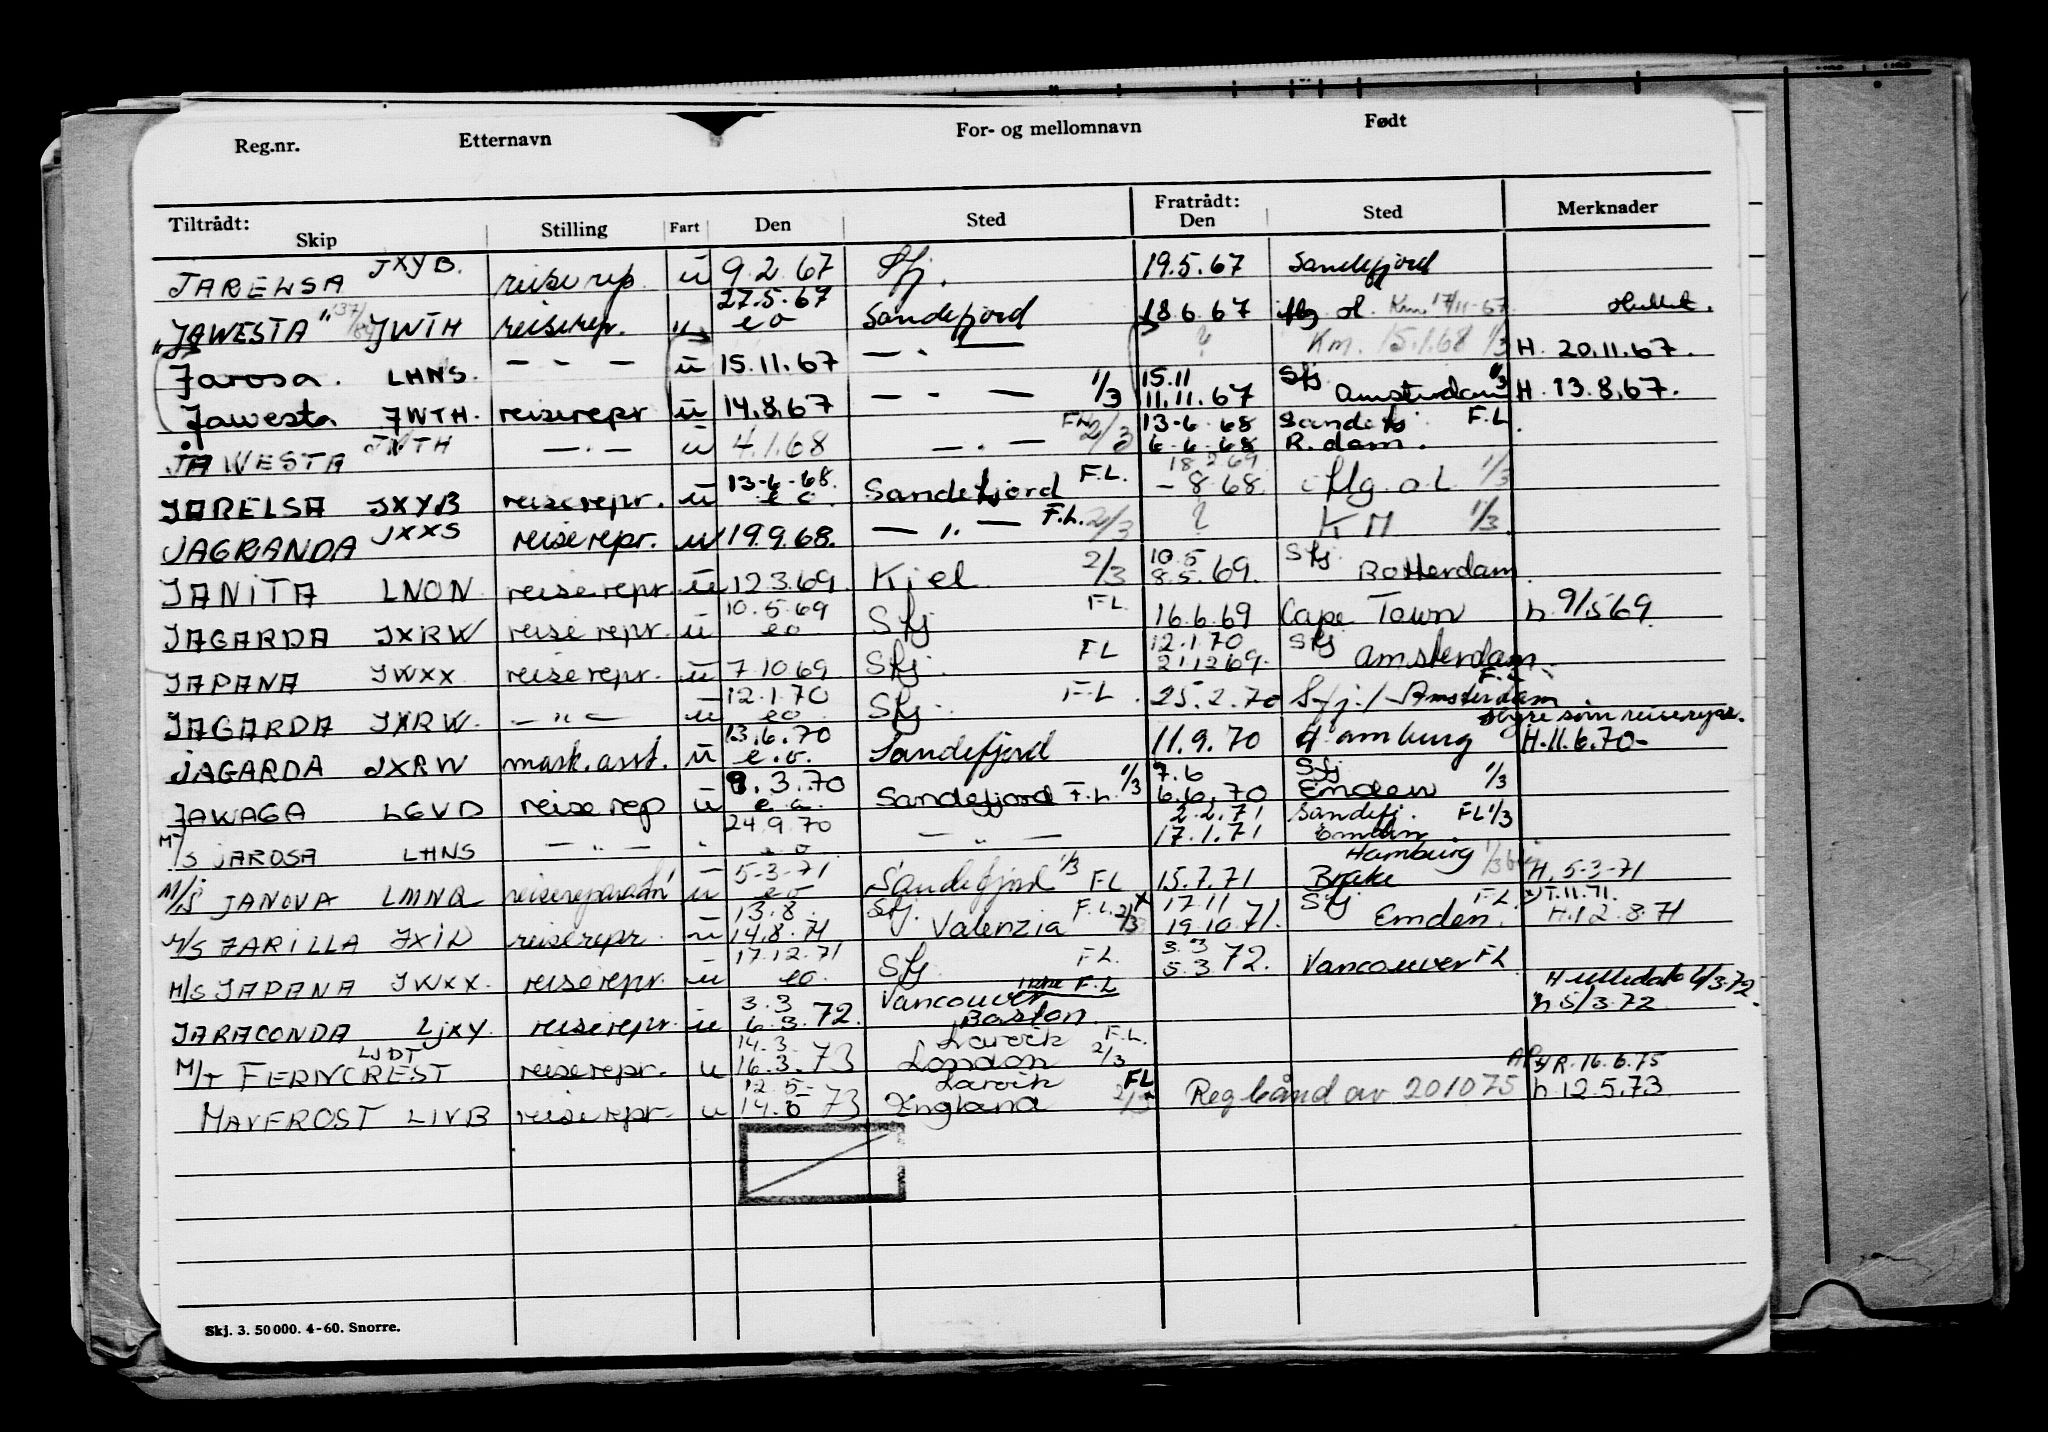 Reg.nr. Etternavn For- og mellomnavn Født
Tiltrådt: Fratrådt:
Skip Stilling Fart Den Sted Den Sted Merknader
JARELSA JXYB. reiserep. u 9.2.67 Sfj. 19.5.67 Sandefjord
27.5.67
"JAWESTA" JWTH reiserepr. eo Sandefjord 18.6.67 Hullet.
Jarosa. LHNS. — " — u 15.11.67 — " — ? Km. 15.1.68 1/3 H. 20.11.67.
15.11 Sfj 1/3
Jawesta JWTH. reiserepr u 14.8.67 — " — 1/3 11.11.67 Amsterdam H. 13.8.67.
13-6-68 Sandefj. F.L.
JAWESTA JWTH — " — u 4.1.68 — " — 2/3 6-6-68 R.dam.
13-6-68. F.L. 18.2.69
JARELSA JXYB reiserepr. u eo. Sandefjord - 8.68. 1/3
JAGRANDA JXXS reiserepr. u 19.9.68. — " — F.L. 2/3 ? KM 1/3
10.5 Sfj.
JANITA LNON reiserepr u 12.3.69. Kiel 2/3 8.5.69. Rotterdam.
10.5.69 FL.
JAGARDA JXRW reiserepr. u eo Sfj 16.6.69 Cape Town h. 9/5 69.
FL 12.1.70 Sfj
JAPANA JWXX reiserepr. u 7.10.69 Sfj. 21.12.69. Amsterdam.
12.1.70 F.L. F.L
JAGARDA JXRW. — " — u eo Sfj. 25.2.70 Sfj./Amsterdam
13.6.70 Hyre som reiserepr.
JAGARDA JXRW mask.asst. u e.o. Sandefjord 11.9.70 Hamburg H.11.6.70-
9.3.70 1/3 7.6 Sfj 1/3
JAWAGA LGVD reiserep u e.o. Sandefjord F.L. 6.6.70 Emden
24.9.70 2.2.71 Sandefj. FL 1/3
M/S JAROSA LHNS — " — " e o — " — 17.1.71 Emden.
5-3-71 1/3 Hamburg
M/S JANOVA LMNQ u eo Sandefjord FL 15.7.71 Brake H. 5-3-71
13.8. Sfj. F.L. 2/3 x 17.11 Sfj F.L. x) T.11.71.
M/S JARILLA JXID reiserepr. u 14.8.71 Valenzia 19.10.71. Emden. H.12.8.71
17.12.71 FL. 3.3
M/S JAPANA JWXX. reiserepr. u eo Sfj. 5.3 72. Vancouver FL
3.3 Vancouver F.L H 6/3.72.
JARACONDA LJXY. reiserepr. u 6.3.72. Boston. h 5/3.72.
14.3. Larvik F.L.
M/T FERNCREST LJDT reiserepr. u 16.3.73 London 2/3 R. 16.6.75
12.5- Larvik FL
MAVFROST LIVB reiserepr. u 14.5 73 England 2/3 Reg bånd av 201075 h. 12.5.73.
Skj. 3. 50 000. 4-60. Snorre.